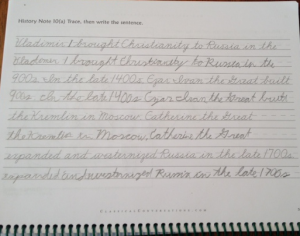 History Note 10(a) Trace, then write the sentence.
Vladimir I brought Christianity to Russia in the
Vladimir I brought Christianity to Russia in the
900s. In the late 1400s Czar Ivan the Great built
900s. In the late 1400s Czar Ivan the Great built
the Kremlin in Moscow. Catherine the Great
the Kremlin in Moscow. Catherine the Great
expanded and westernized Russia in the late 1700s.
expanded and westernized Russia in the late 1700s